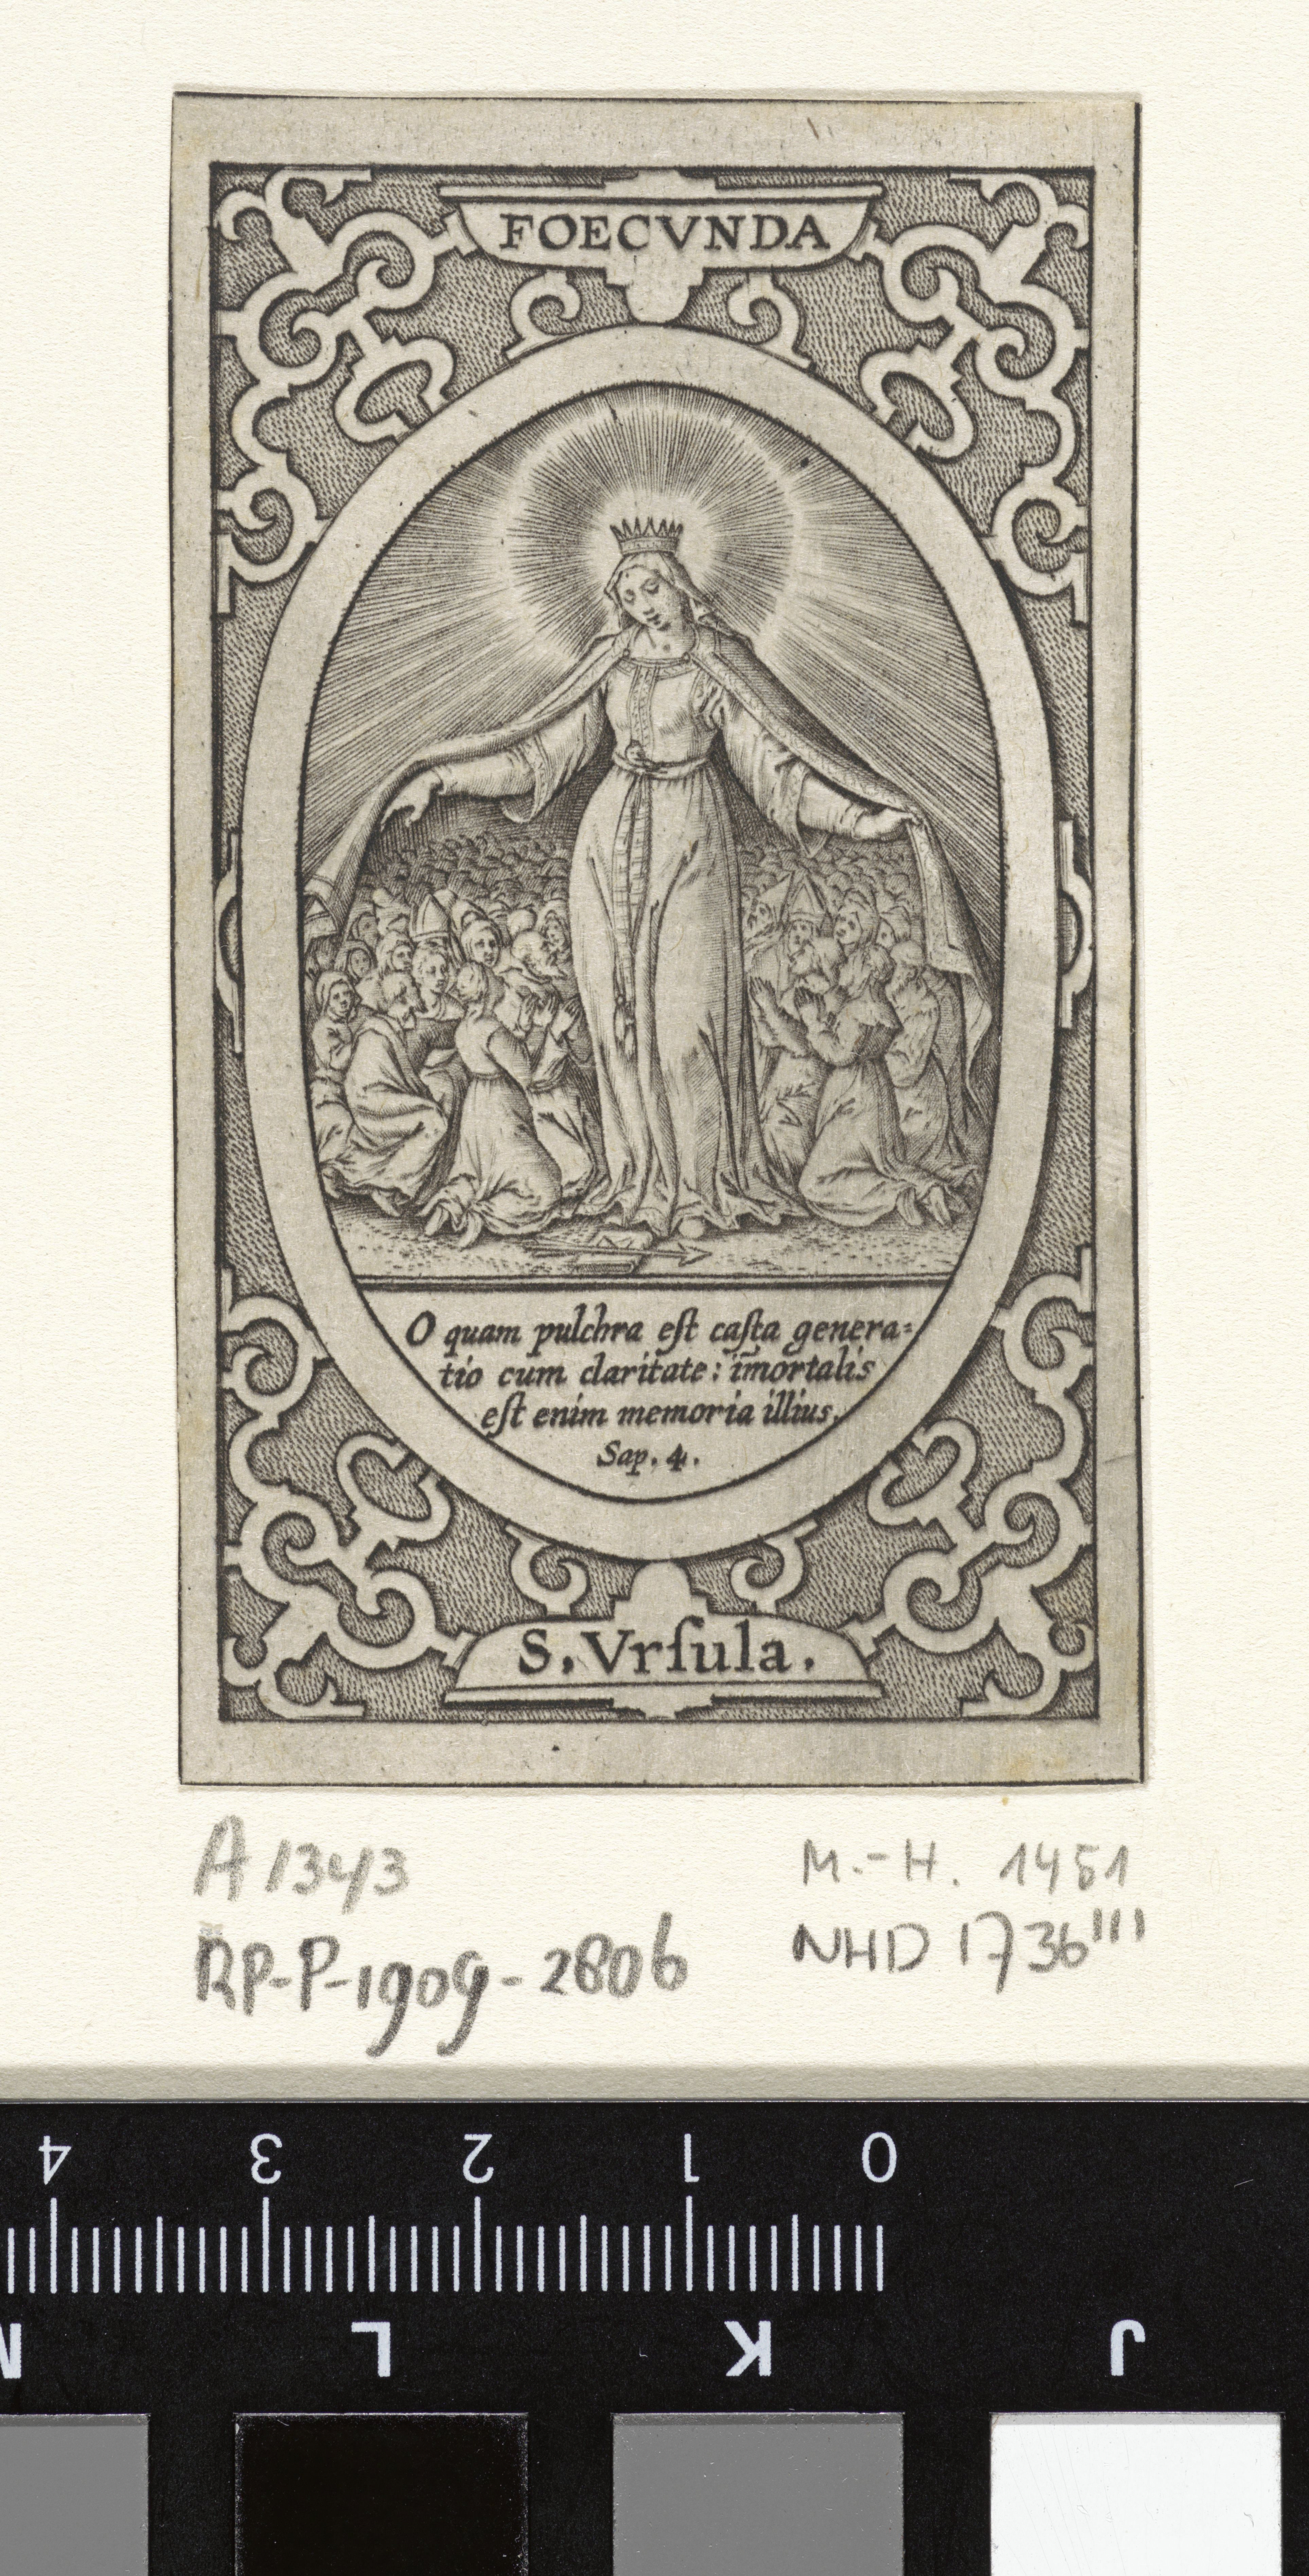 FOECVNDA
O quam pulchra eſt caſta genera=
tio cum claritate: im̄ortalis
eſt enim memoria illius.
Sap. 4.
S. Vrſula.
A 1343
M.-H. 1451
RP-P-1909-2806
NHD 1736III
4 3 2 1 0
M L K J